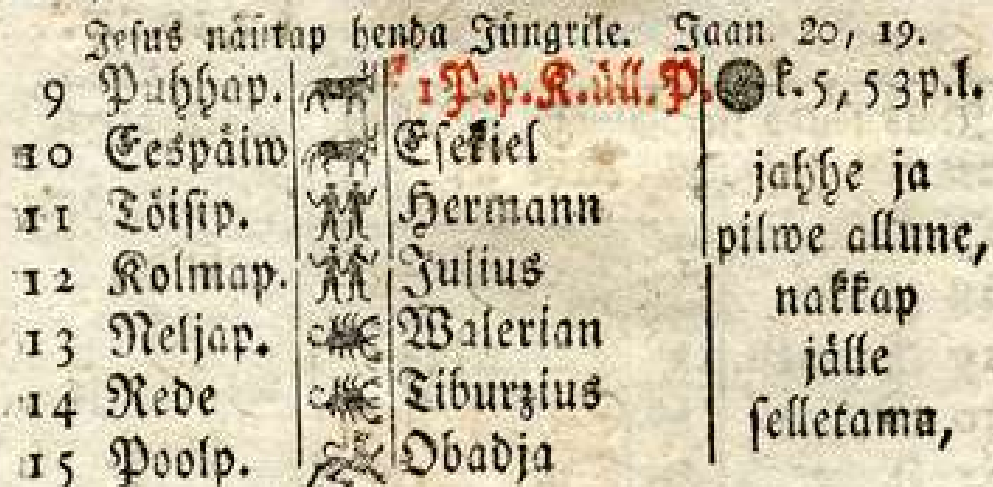 Jesus näütap henda Jüngrile. Jaan. 20, 19.
9 Puhhap. 1 P. p. K. üll. P. k. 5, 53 p. l.
10 Eespäiw Esekiel jahhe ja
11 Töisip. Hermann pilwe allune,
12 Kolmap. Julius nakkap
13 Neljap. Walerian jälle
14 Rede Tiburzius selletama,
15 Poolp. Obadja